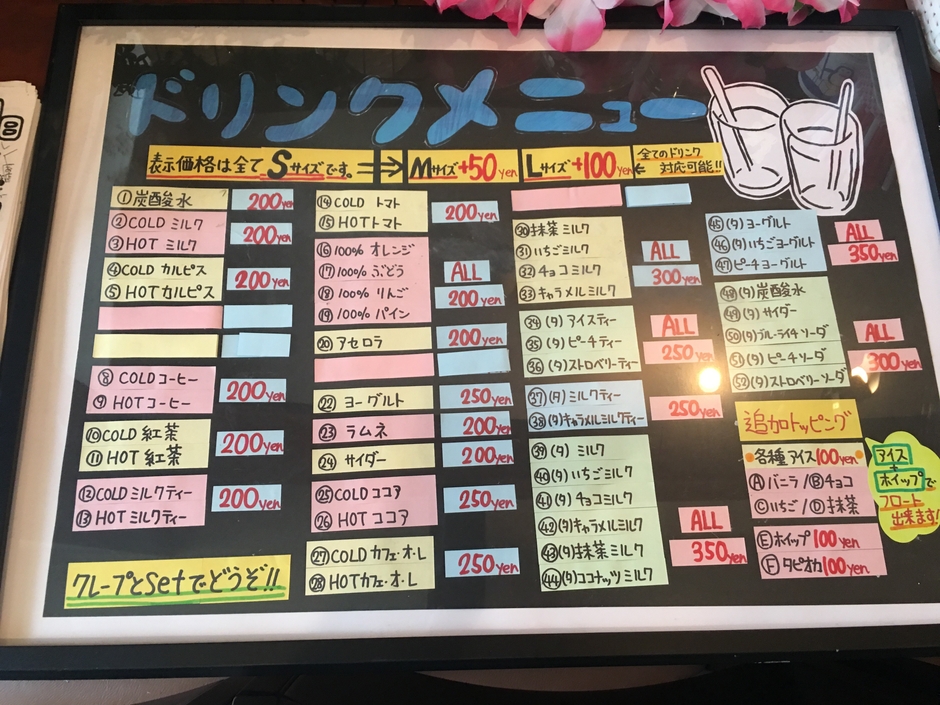 ドリンクメニュー
表示価格は全てSサイズです。
Mサイズ+50yen
Lサイズ+100yen
全てのドリンク対応可能!!
①炭酸水 200yen
②COLD ミルク
③HOT ミルク
200yen
④COLD カルピス
⑤HOTカルピス
200yen
⑧COLDコーヒー
⑨HOTコーヒー
200yen
⑩COLD 紅茶
⑪HOT 紅茶
200yen
⑫COLDミルクティー
⑬HOTミルクティー
200yen
クレープとsetでどうぞ!!
⑭COLD トマト
⑮HOTトマト
200yen
⑯100% オレンジ
⑰100% ぶどう
⑱100% りんご
⑲100% パイン
ALL
200yen
⑳アセロラ 200yen
㉒ヨーグルト 250yen
㉓ラムネ 200yen
㉔サイダー 200yen
㉕COLDココア
㉖HOTココア
250yen
㉗COLDカフェ・オ・L
㉘HOTカフェ・オ・L
250yen
㉚抹茶ミルク
㉛いちごミルク
㉜チョコミルク
㉝キャラメルミルク
ALL
300yen
㉞(タ)アイスティー
㉟(タ)ピーチティー
㊱(タ)ストロベリーティー
ALL
250yen
㊲(タ)ミルクティー
㊳(タ)キャラメルミルクティー
250yen
㊴(タ)ミルク
㊵(タ)いちごミルク
㊶(タ)チョコミルク
㊷(タ)キャラメルミルク
㊸(タ)抹茶ミルク
㊹(タ)ココナッツミルク
ALL
350yen
㊺(タ)ヨーグルト
㊻(タ)いちごヨーグルト
㊼ピーチヨーグルト
ALL
350yen
㊽(タ)炭酸水
㊾(タ)サイダー
㊿(タ)ブルーライチソーダ
51(タ)ピーチソーダ
52(タ)ストロベリーソーダ
ALL
300yen
追加トッピング
各種アイス100yen
Ⓐバニラ/Ⓑチョコ
Ⓒいちご/Ⓓ抹茶
Ⓔホイップ100yen
Ⓕタピオカ100yen
アイス
+
ホイップで
フロート
出来ます!